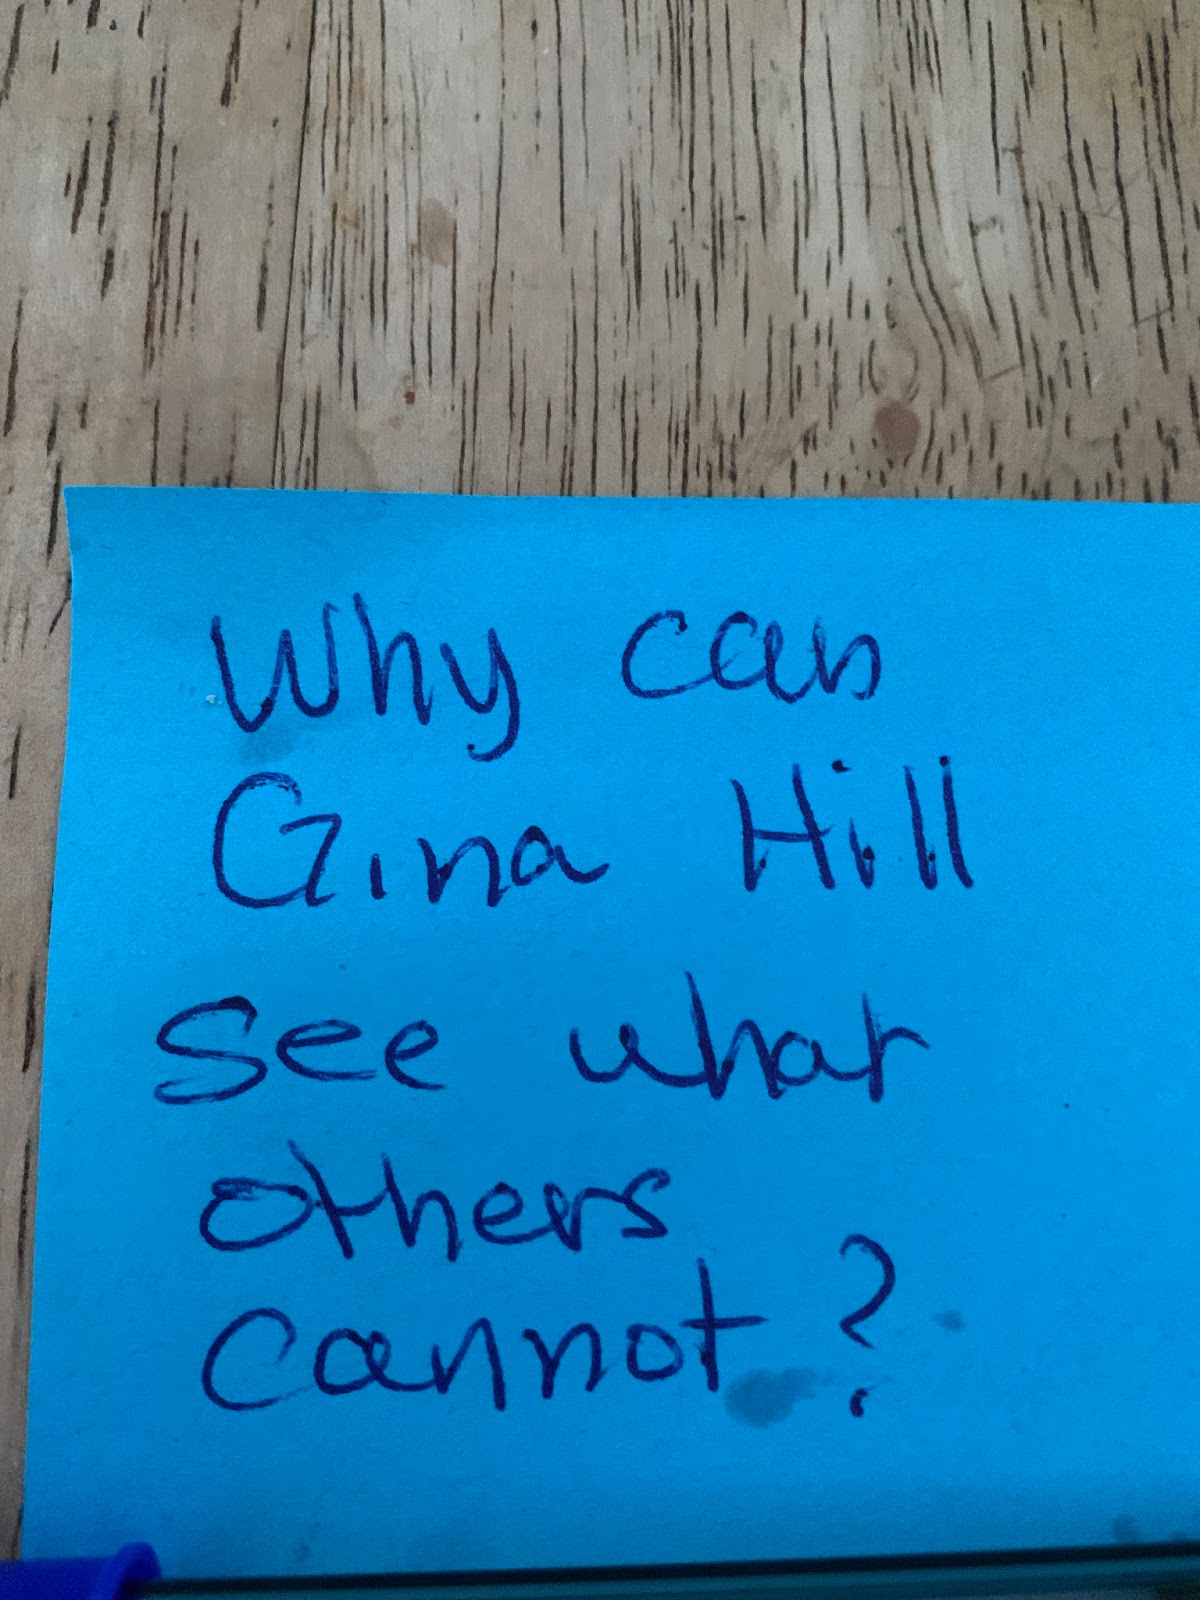 Why can
Gina Hill
see what
others
cannot?